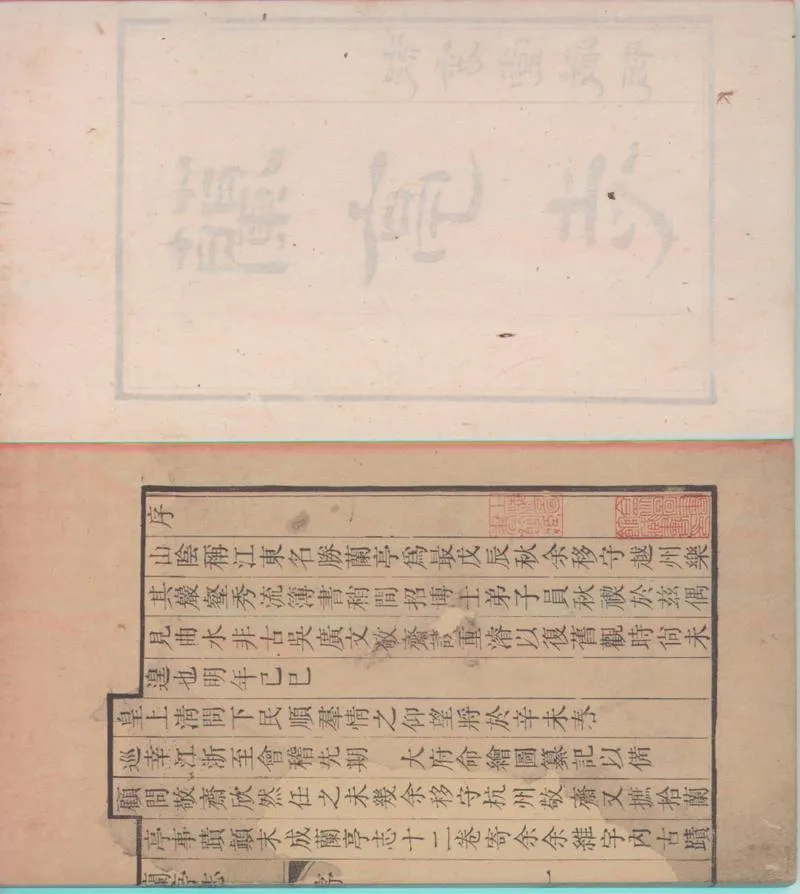 蘭亭志
序
山陰稱江東名勝蘭亭爲最戊辰秋余移守越州樂
其巖壑秀流簿書稍間招博士弟子員秋禊於茲偶
見曲水非古吳廣文敬齋請重濬以復舊觀時尙未
遑也明年己巳
皇上清問下民順羣情之仰望將於辛未春
巡幸江浙至會稽先期 大府命繪圖纂記以備
顧問敬齋欣然任之未幾余移守杭州敬齋又摭拾蘭
亭事蹟顛末成蘭亭志十二卷寄余余維宇內古蹟
蘭亭志 序 一